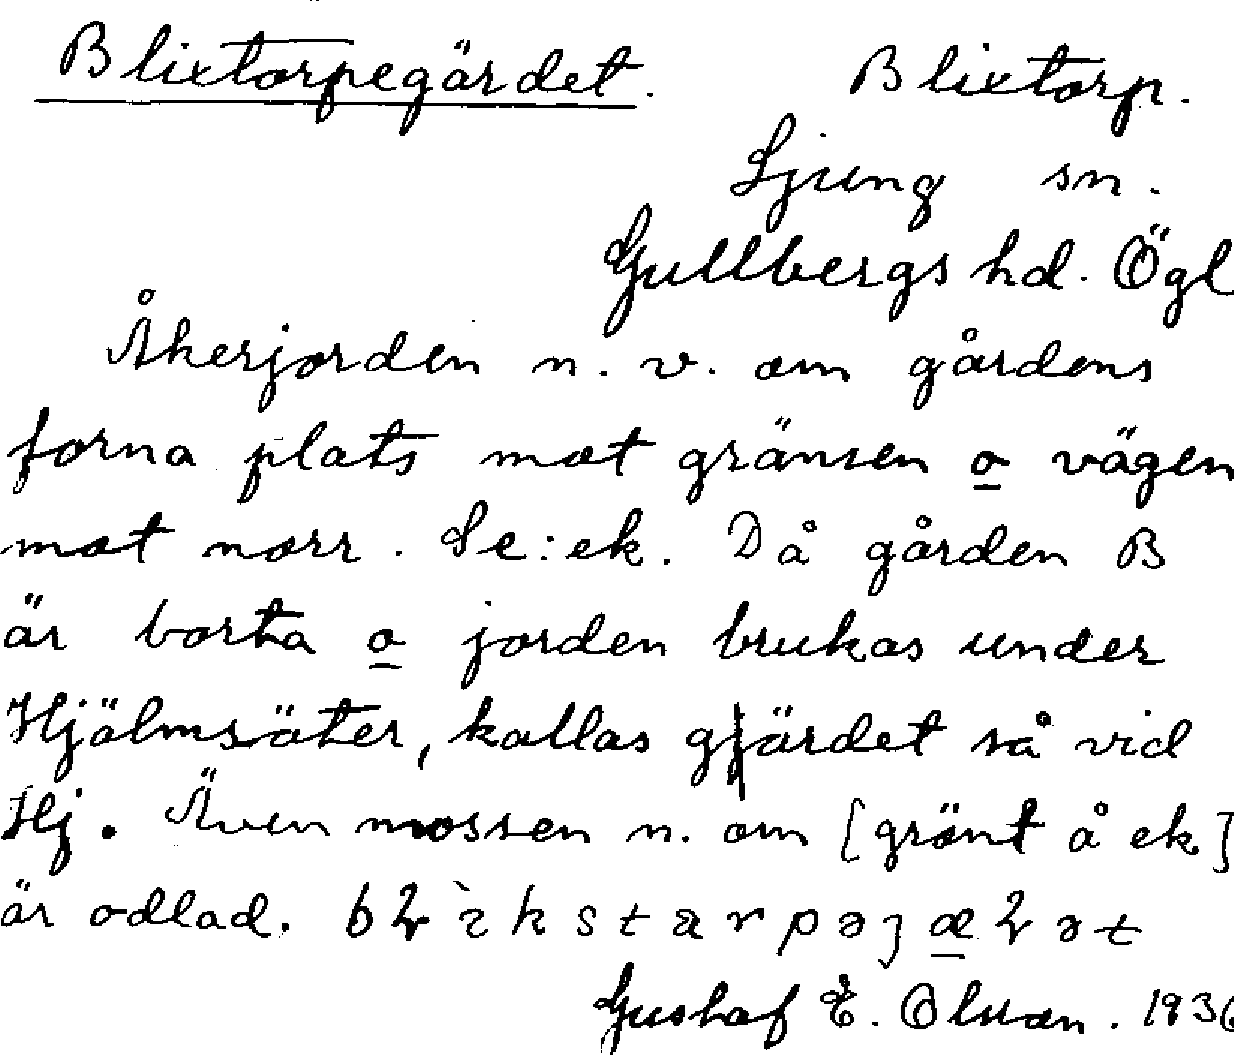 Blixtorpegärdet. Blixtorp.
Ljung sn.
Gullbergs hd. Ögl
Åkerjorden n. v. om gårdens
forna plats mot gränsen o vägen
mot norr. Se: ek. Då gården B
är borta o jorden brukas under
Hjälmsäter, kallas gärdet så vid
Hj. Även mossen n. om [grönt å ek]
är odlad.
Gustaf E. Olsson. 1936